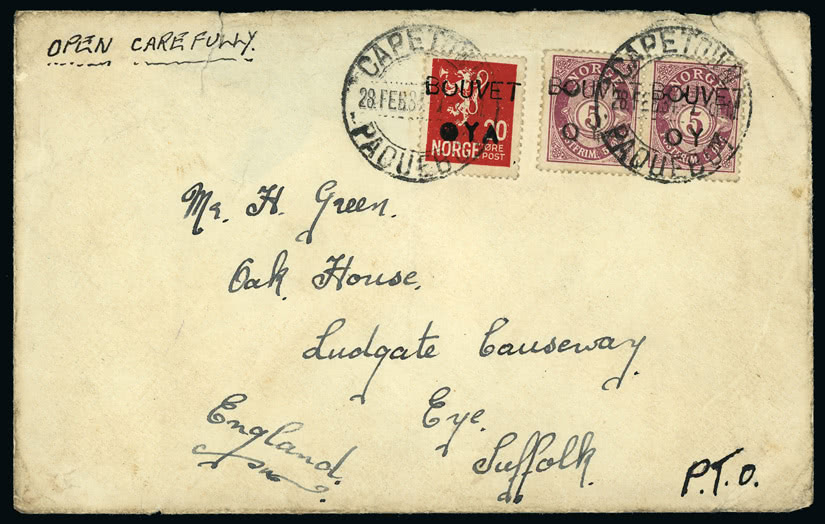 OPEN CAREFULLY.
CAPETOWN
28.FEB.34
PAQUEBOT
BOUVET
ØYA
20
NORGE ØRE
POST
CAPETOWN
28 FEB 34
PAQUEBOT
NORGE
BOUVET
5
NORGE
BOUVET
ØYA
5
Mr. H. Green.
Oak House.
Ludgate Causeway
Eye.
England.
Suffolk.
P.T.O.